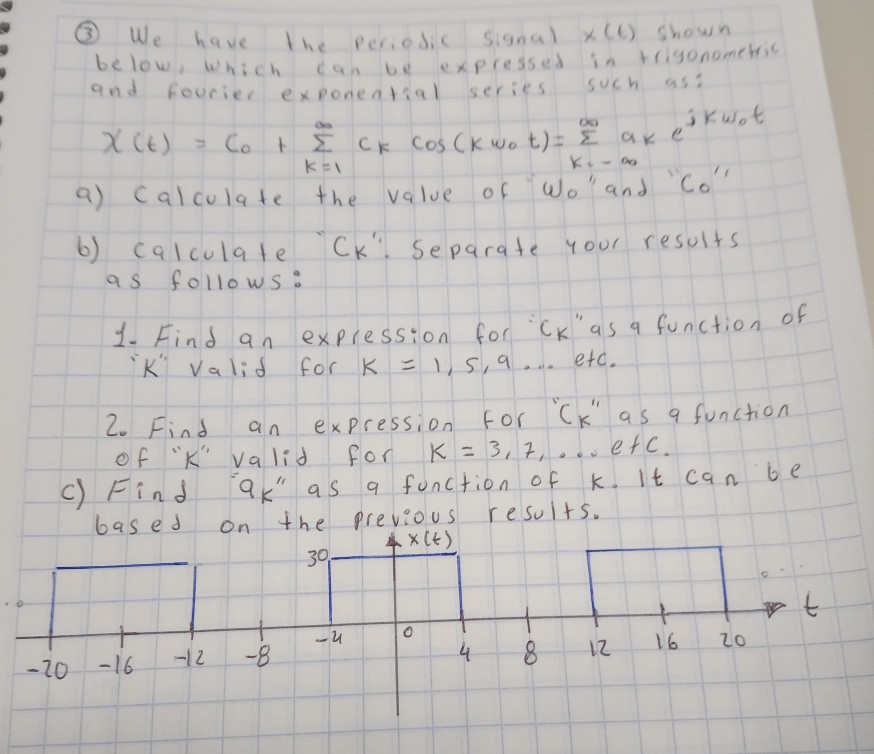 ③ We have the periodic signal x(t) shown
below, which can be expressed in trigonometric
and fourier exponential series such as:
X(t) = C₀ + ∞Σk=1 Cₖ cos(Kω₀t) = ∞Σk=-∞ aₖ e^jkω₀t
a) Calculate the value of "ω₀" and "C₀"
b) calculate "Cₖ". Separate your results
as follows:
1. Find an expression for "Cₖ" as a function of
"K" valid for K = 1, 5, 9 ... etc.
2. Find an expression for "Cₖ" as a function
of "K" valid for K = 3, 7, ... etc.
c) Find "aₖ" as a function of k. It can be
based on the previous results.
x(t)
30
t
-20 -16 -12 -8 -4 0 4 8 12 16 20